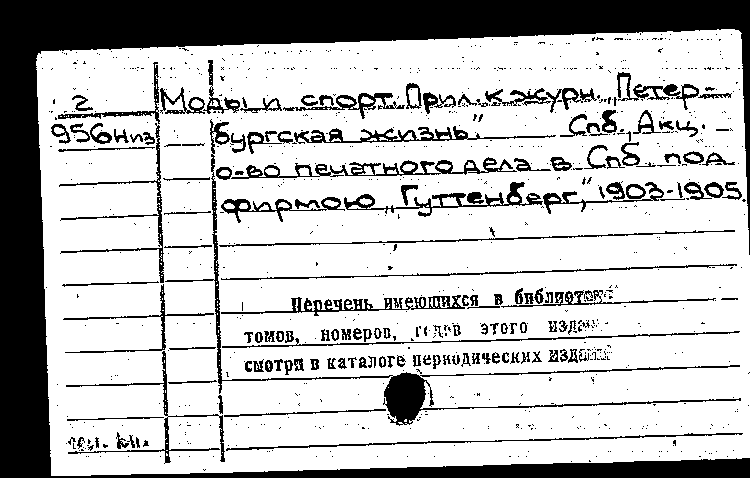 2 Моды и спорт. Прил. к журн. „Петер-
956 Низ бургская жизнь". Спб, Акц.
о-во печатного дела в Спб под
фирмою „Гуттенберг", 1903-1905.
Перечень имеющихся в библиотеке
томов, номеров, годов этого издания
смотри в каталоге периодических изданий